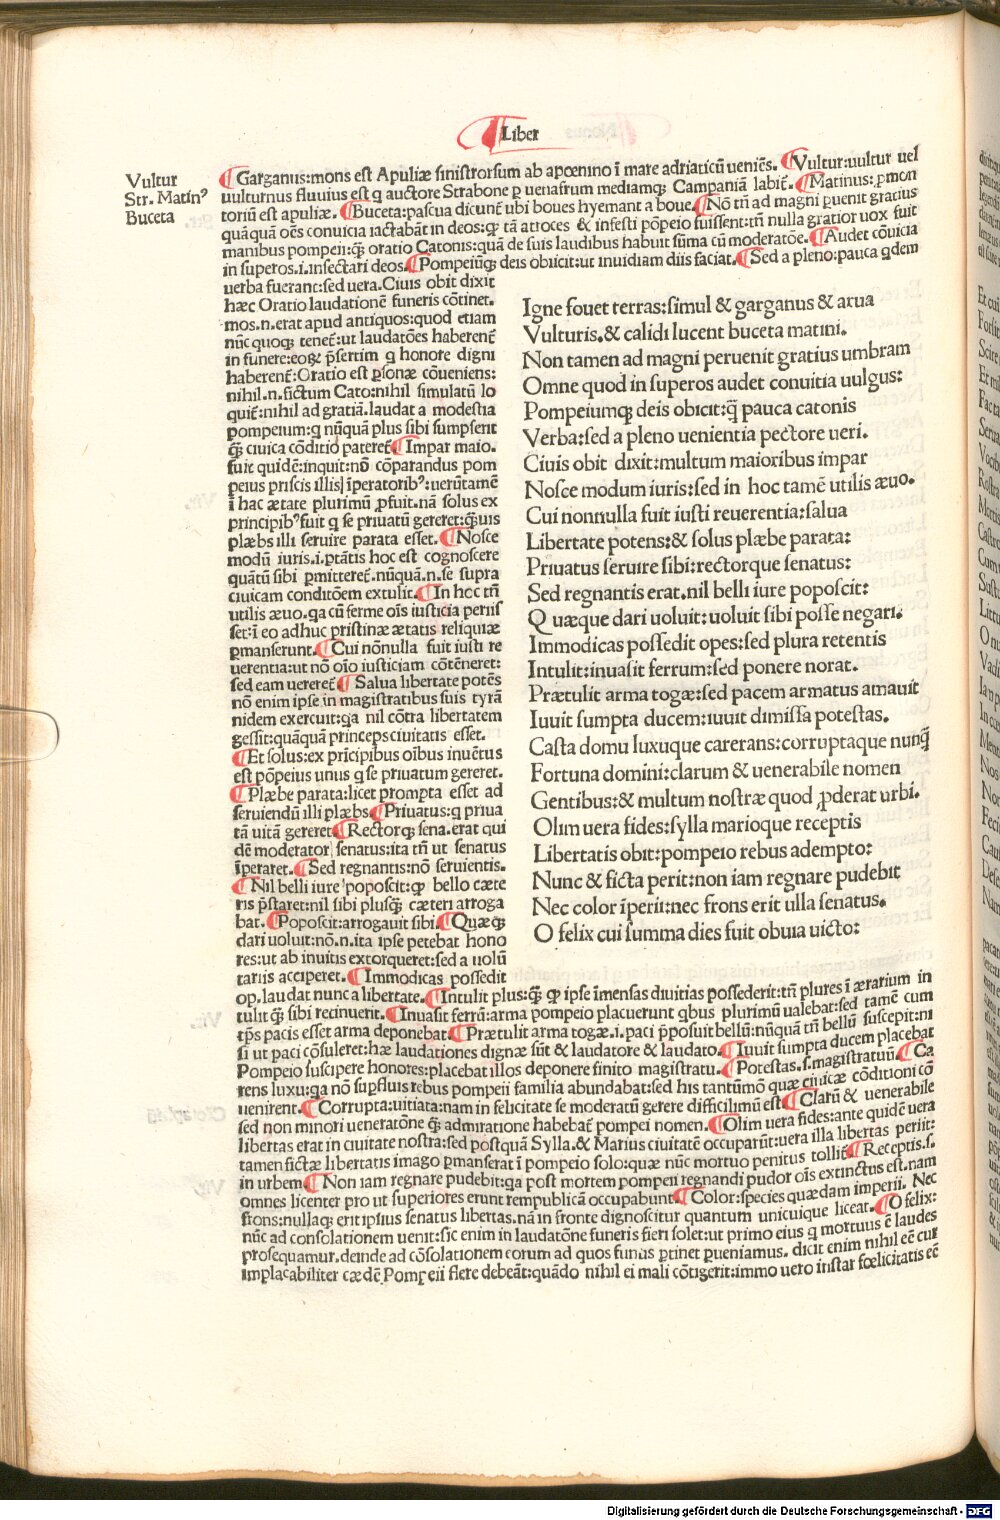 Liber
Vultur
Str. Matinꝰ
Buceta
Garganus:mons est Apuliæ sinistrorsum ab apoenino ī mare adriaticū ueniēs. Vultur:uultur uel
uulturnus fluuius est q auctore Strabone p uenafrum mediamqꝫ Campaniā labit̄. Matinus:p̱mon
toriū est apuliæ. Buceta:pascua dicunt̄ ubi boues hyemant a boue. Nō tn̄ ad magni puenit gratius
quāquā oēs conuicia iactabāt in deos:qꝙ tā atroces & infesti pōpeio fuissent:tn̄ nulla gratior uox fuit
manibus pompeii:q̄ꝫ oratio Catonis:quā de suis laudibus habuit sūma cū moderatōe. Audet cōuicia
in superos.i.insectari deos. Pompeiūqꝫ deis obiicit:ut inuidiam diis faciat. Sed a pleno:pauca qdem
uerba fuerant:sed uera. Ciuis obit dixit
hæc Oratio laudationē funeris cōtinet.
mos.n.erat apud antiquos:quod etiam
nūc quoqꝫ tenet̄:ut laudatōes haberent̄
in funere:eoꝝ p̄sertim q honore digni
haberent̄:Oratio est p̱sonæ cōueniens:
nihil.n.fictum Cato:nihil simulatū lo
quit̄:nihil ad gratiā.laudat a modestia
pompeium:q nūquā plus sibi sumpserit
q̄ꝫ ciuica cōditio pateret̄ Impar maio.
fuit quidē:inquit:nō cōparandus pom
peius priscis illis īperatoribꝰ:uerūtamē
ī hac ætate plurimū p̱fuit.nā solus ex
principibꝰ fuit q se priuatū gereret:q̄ꝫuis
plæbs illi seruire parata esset. Nosce
modū iuris.i.ptātis hoc est cognoscere
quātū sibi pmitteret̄.nūquā.n.se supra
ciuicam conditōem extulit. In hoc tn̄
utilis æuo.qa cū ferme oīs iusticia periis
set:ī eo adhuc pristinæ ætatis reliquiæ
pmanserunt. Cui nōnulla fuit iusti re
uerentia:ut nō oīo iusticiam cōtēneret:
sed eam uereret̄ Salua libertate potēs
nō enim ipse in magistratibus suis tyrā
nidem exercuit:qa nil cōtra libertatem
gessit:quāquā princeps ciuitatis esset.
Et solus:ex prīcipibus oībus inuētus
est pōpeius unus q se priuatum gereret.
Plæbe parata:licet prompta esset ad
seruiendū illi plæbs Priuatus:q priua
tā uitā gereret Rectorqꝫ sena.erat qui
dē moderator senatus:ita tn̄ ut senatus
īperaret. Sed regnantis:nō seruientis.
Nil belli iure poposcit:qꝙ bello cæte
ris p̄staret:nil sibi plusq̄ꝫ cæteri arroga
bat. Poposcit:arrogauit sibi. Quæq̄ꝫ
dari uoluit:nō.n.ita ipse petebat hono
res:ut ab inuitis extorqueret:sed a uolū
tariis acciperet. Immodicas possedit
op.laudat nunc a libertate. Intulit plus:q̄ꝫ qꝙ ipse īmensas diuitias possederit:tn̄ plures ī ærarium in
tulit q̄ꝫ sibi retinuerit. Inuasit ferrū:arma pompeio placuerunt qbus plurimū ualebat:sed tamē cum
tp̄s pacis esset arma deponebat. Prætulit arma togæ.i.paci p̱posuit bellū:nūquā tn̄ bellū suscepit:ni
si ut paci cōsuleret:hæ laudationes dignæ sūt & laudatore & laudato. Iuuit sumpta ducem placebat
Pompeio suscipere honores:placebat illos deponere finito magistratu. Potestas.s.magistratuū. Ca
rens luxu:qa nō supfluis rebus pompeii familia abundabat:sed his tantūmō quæ ciuicæ cōditioni cō
uenirent. Corrupta:uitiata:nam in felicitate se moderatū gerere difficilimū est Clarū & uenerabile
sed non minori ueneratōne q̄ꝫ admiratione habebat̄ pompei nomen. Olim uera fides:ante quidē uera
libertas erat in ciuitate nostra:sed postquā Sylla.& Marius ciuitatē occuparūt:uera illa libertas periit:
tamen fictæ libertatis imago pmanserat ī pompeio solo:quæ nūc mortuo penitus tollit̄ Receptis.s.
in urbem Non iam regnare pudebit:qa post mortem pompeii regnandi pudor oīs extinctus est.nam
omnes licenter pro ut superiores erunt rempublicā occupabunt Color:species quædam imperii. Nec
frons:nullaqꝫ erit ipsius senatus libertas.nā in fronte dignoscitur quantum unicuique liceat. O felix:
nūc ad consolationem uenit:sic enim in laudatōne funeris fieri solet:ut primo eius q mortuus ē laudes
prosequamur.deinde ad cōsolationem eorum ad quos funus ptinet pueniamus. dicit enim nihil eē cur
implacabiliter cædē Pompeii flere debeāt:quādo nihil ei mali cōtigerit:immo uero instar fœlicitatis eē
Igne fouet terras:simul & garganus & arua
Vulturis.& calidi lucent buceta matini.
Non tamen ad magni peruenit gratius umbram
Omne quod in superos audet conuitia uulgus:
Pompeiumqꝫ deis obicit:q̄ pauca catonis
Verba:sed a pleno uenientia pectore ueri.
Ciuis obit dixit:multum maioribus impar
Nosce modum iuris:sed in hoc tamē utilis æuo.
Cui nonnulla fuit iusti reuerentia:salua
Libertate potens:& solus plæbe parata:
Priuatus seruire sibi:rectorque senatus:
Sed regnantis erat.nil belli iure poposcit:
Quæque dari uoluit:uoluit sibi posse negari.
Immodicas possedit opes:sed plura retentis
Intulit:inuasit ferrum:sed ponere norat.
Prætulit arma togæ:sed pacem armatus amauit
Iuuit sumpta ducem:iuuit dimissa potestas.
Casta domu luxuque carerans:corruptaque nunq̄
Fortuna domini:clarum & uenerabile nomen
Gentibus:& multum nostræ quod p̱derat urbi.
Olim uera fides:sylla marioque receptis
Libertatis obit:pompeio rebus adempto:
Nunc & ficta perit:non iam regnare pudebit
Nec color īperii:nec frons erit ulla senatus.
O felix cui summa dies fuit obuia uicto:
Digitalisierung gefördert durch die Deutsche Forschungsgemeinschaft - DFG